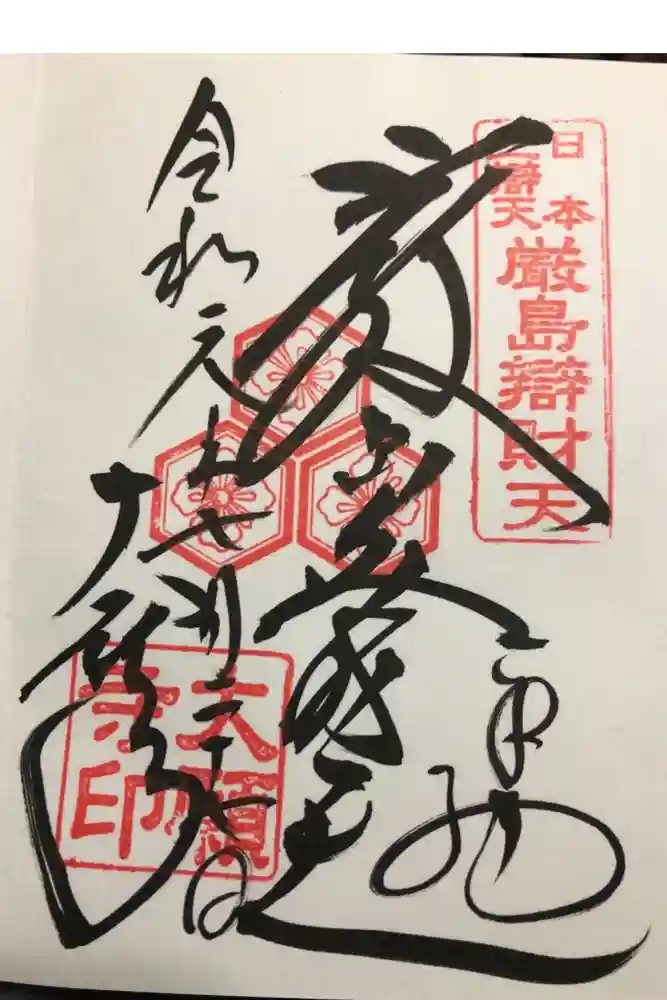 奉拝
日本
三辯天
厳島辯財天
令和元年七月二十七日
大願寺
大願
寺印